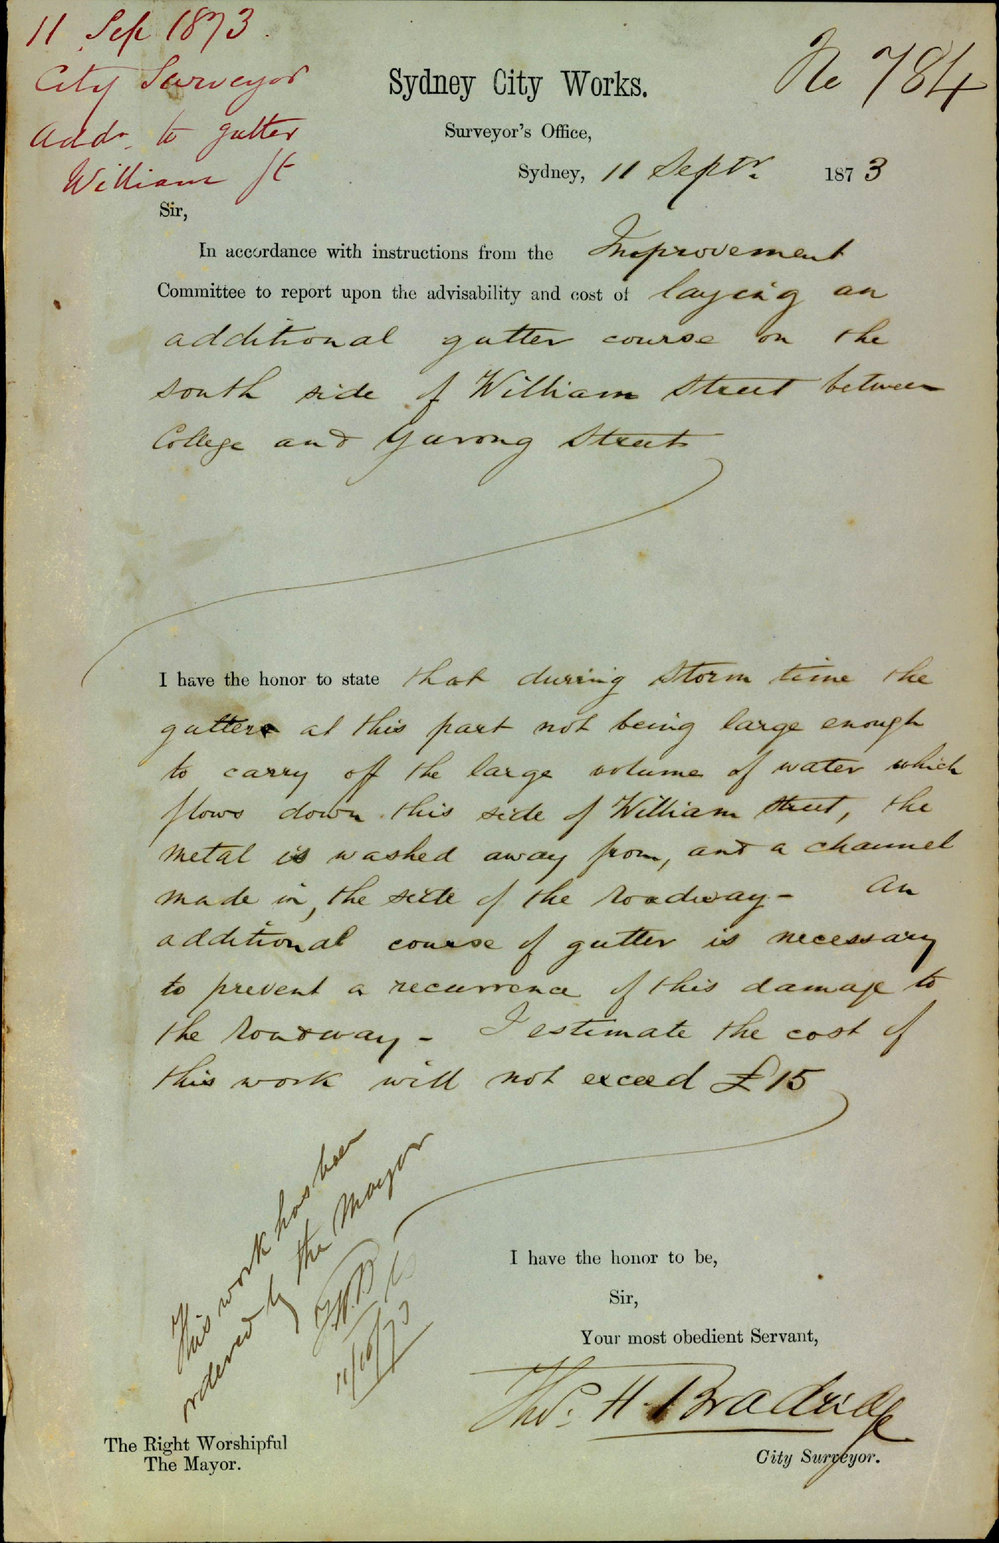 11 Sep 1873
City Surveyor
Addn. to gutter
William St
No 784
Sydney City Works.
Surveyor's Office,
Sydney, 11 Septr. 1873
Sir,
In accordance with instructions from the Improvement
Committee to report upon the advisability and cost of laying an
additional gutter course on the
south side of William Street between
College and Yurong Streets
I have the honor to state that during storm time the
gutters at this part not being large enough
to carry off the large volume of water which
flows down this side of William Street, the
metal is washed away from, and a channel
made in, the side of the roadway - An
additional course of gutter is necessary
to prevent a recurrence of this damage to
the roadway - I estimate the cost of
this work will not exceed £15
This work has been
ordered by the Mayor
11/10/73
I have the honor to be,
Sir,
Your most obedient Servant,
Thos. H. Bradridge
City Surveyor.
The Right Worshipful
The Mayor.